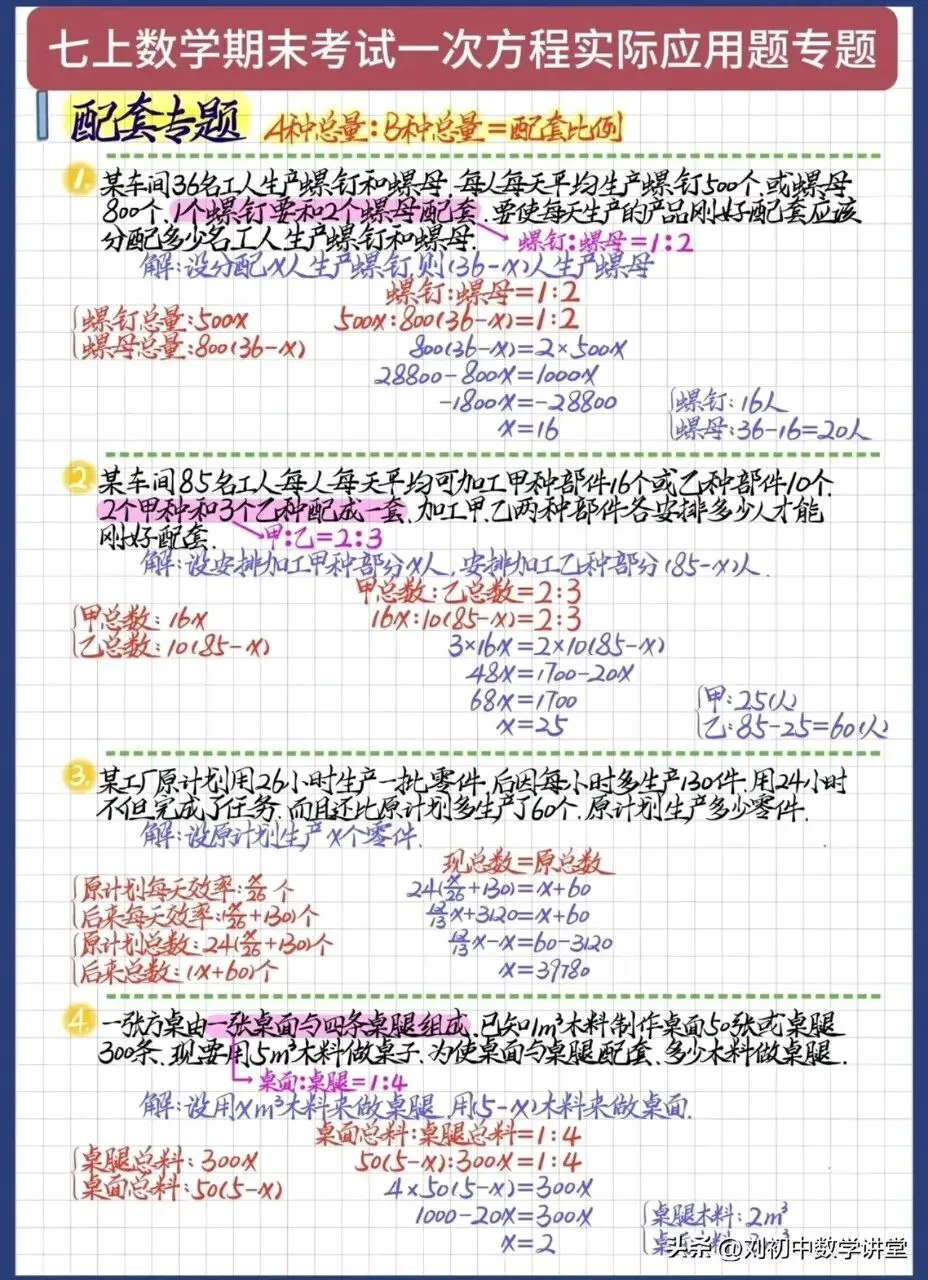 七上数学期末考试一次方程实际应用题专题
配套专题 A种总量:B种总量=配套比例
1. 某车间36名工人生产螺钉和螺母,每人每天平均生产螺钉500个,或螺母
800个,1个螺钉要和2个螺母配套,要使每天生产的产品刚好配套应该
分配多少名工人生产螺钉和螺母.
螺钉:螺母=1:2
解:设分配x人生产螺钉,则(36-x)人生产螺母
螺钉:螺母=1:2
螺钉总量:500x 500x:800(36-x)=1:2
螺母总量:800(36-x) 800(36-x)=2×500x
28800-800x=1000x
-1800x=-28800 螺钉:16人
x=16 螺母:36-16=20人
2. 某车间85名工人每人每天平均可加工甲种部件16个或乙种部件10个.
2个甲种和3个乙种配成一套,加工甲.乙两种部件各安排多少人才能
刚好配套.
甲:乙=2:3
解:设安排加工甲种部分x人,安排加工乙种部分(85-x)人.
甲总数:乙总数=2:3
甲总数:16x 16x:10(85-x)=2:3
乙总数:10(85-x) 3×16x=2×10(85-x)
48x=1700-20x
68x=1700 甲:25(人)
x=25 乙:85-25=60(人)
3. 某工厂原计划用26小时生产一批零件,后因每小时多生产130件,用24小时
不但完成了任务.而且还比原计划多生产了60个.原计划生产多少零件.
解:设原计划生产x个零件.
现总数=原总数
原计划每天效率:x/26个 24(x/26+130)=x+60
后来每天效率:(x/26+130)个 12/13x+3120=x+60
原计划总数:24(x/26+130)个 12/13x-x=60-3120
后来总数:(x+60)个 x=39780
4. 一张方桌由一张桌面与四条桌腿组成,已知1m³木料制作桌面50张或桌腿
300条.现要用5m³木料做桌子.为使桌面与桌腿配套.多少木料做桌腿.
桌面:桌腿=1:4
解:设用xm³木料来做桌腿,用(5-x)木料来做桌面.
桌面总料:桌腿总料=1:4
桌腿总料:300x 50(5-x):300x=1:4
桌面总料:50(5-x) 4×50(5-x)=300x
1000-20x=300x 桌腿木料:2m³
x=2
头条 @刘初中数学讲堂